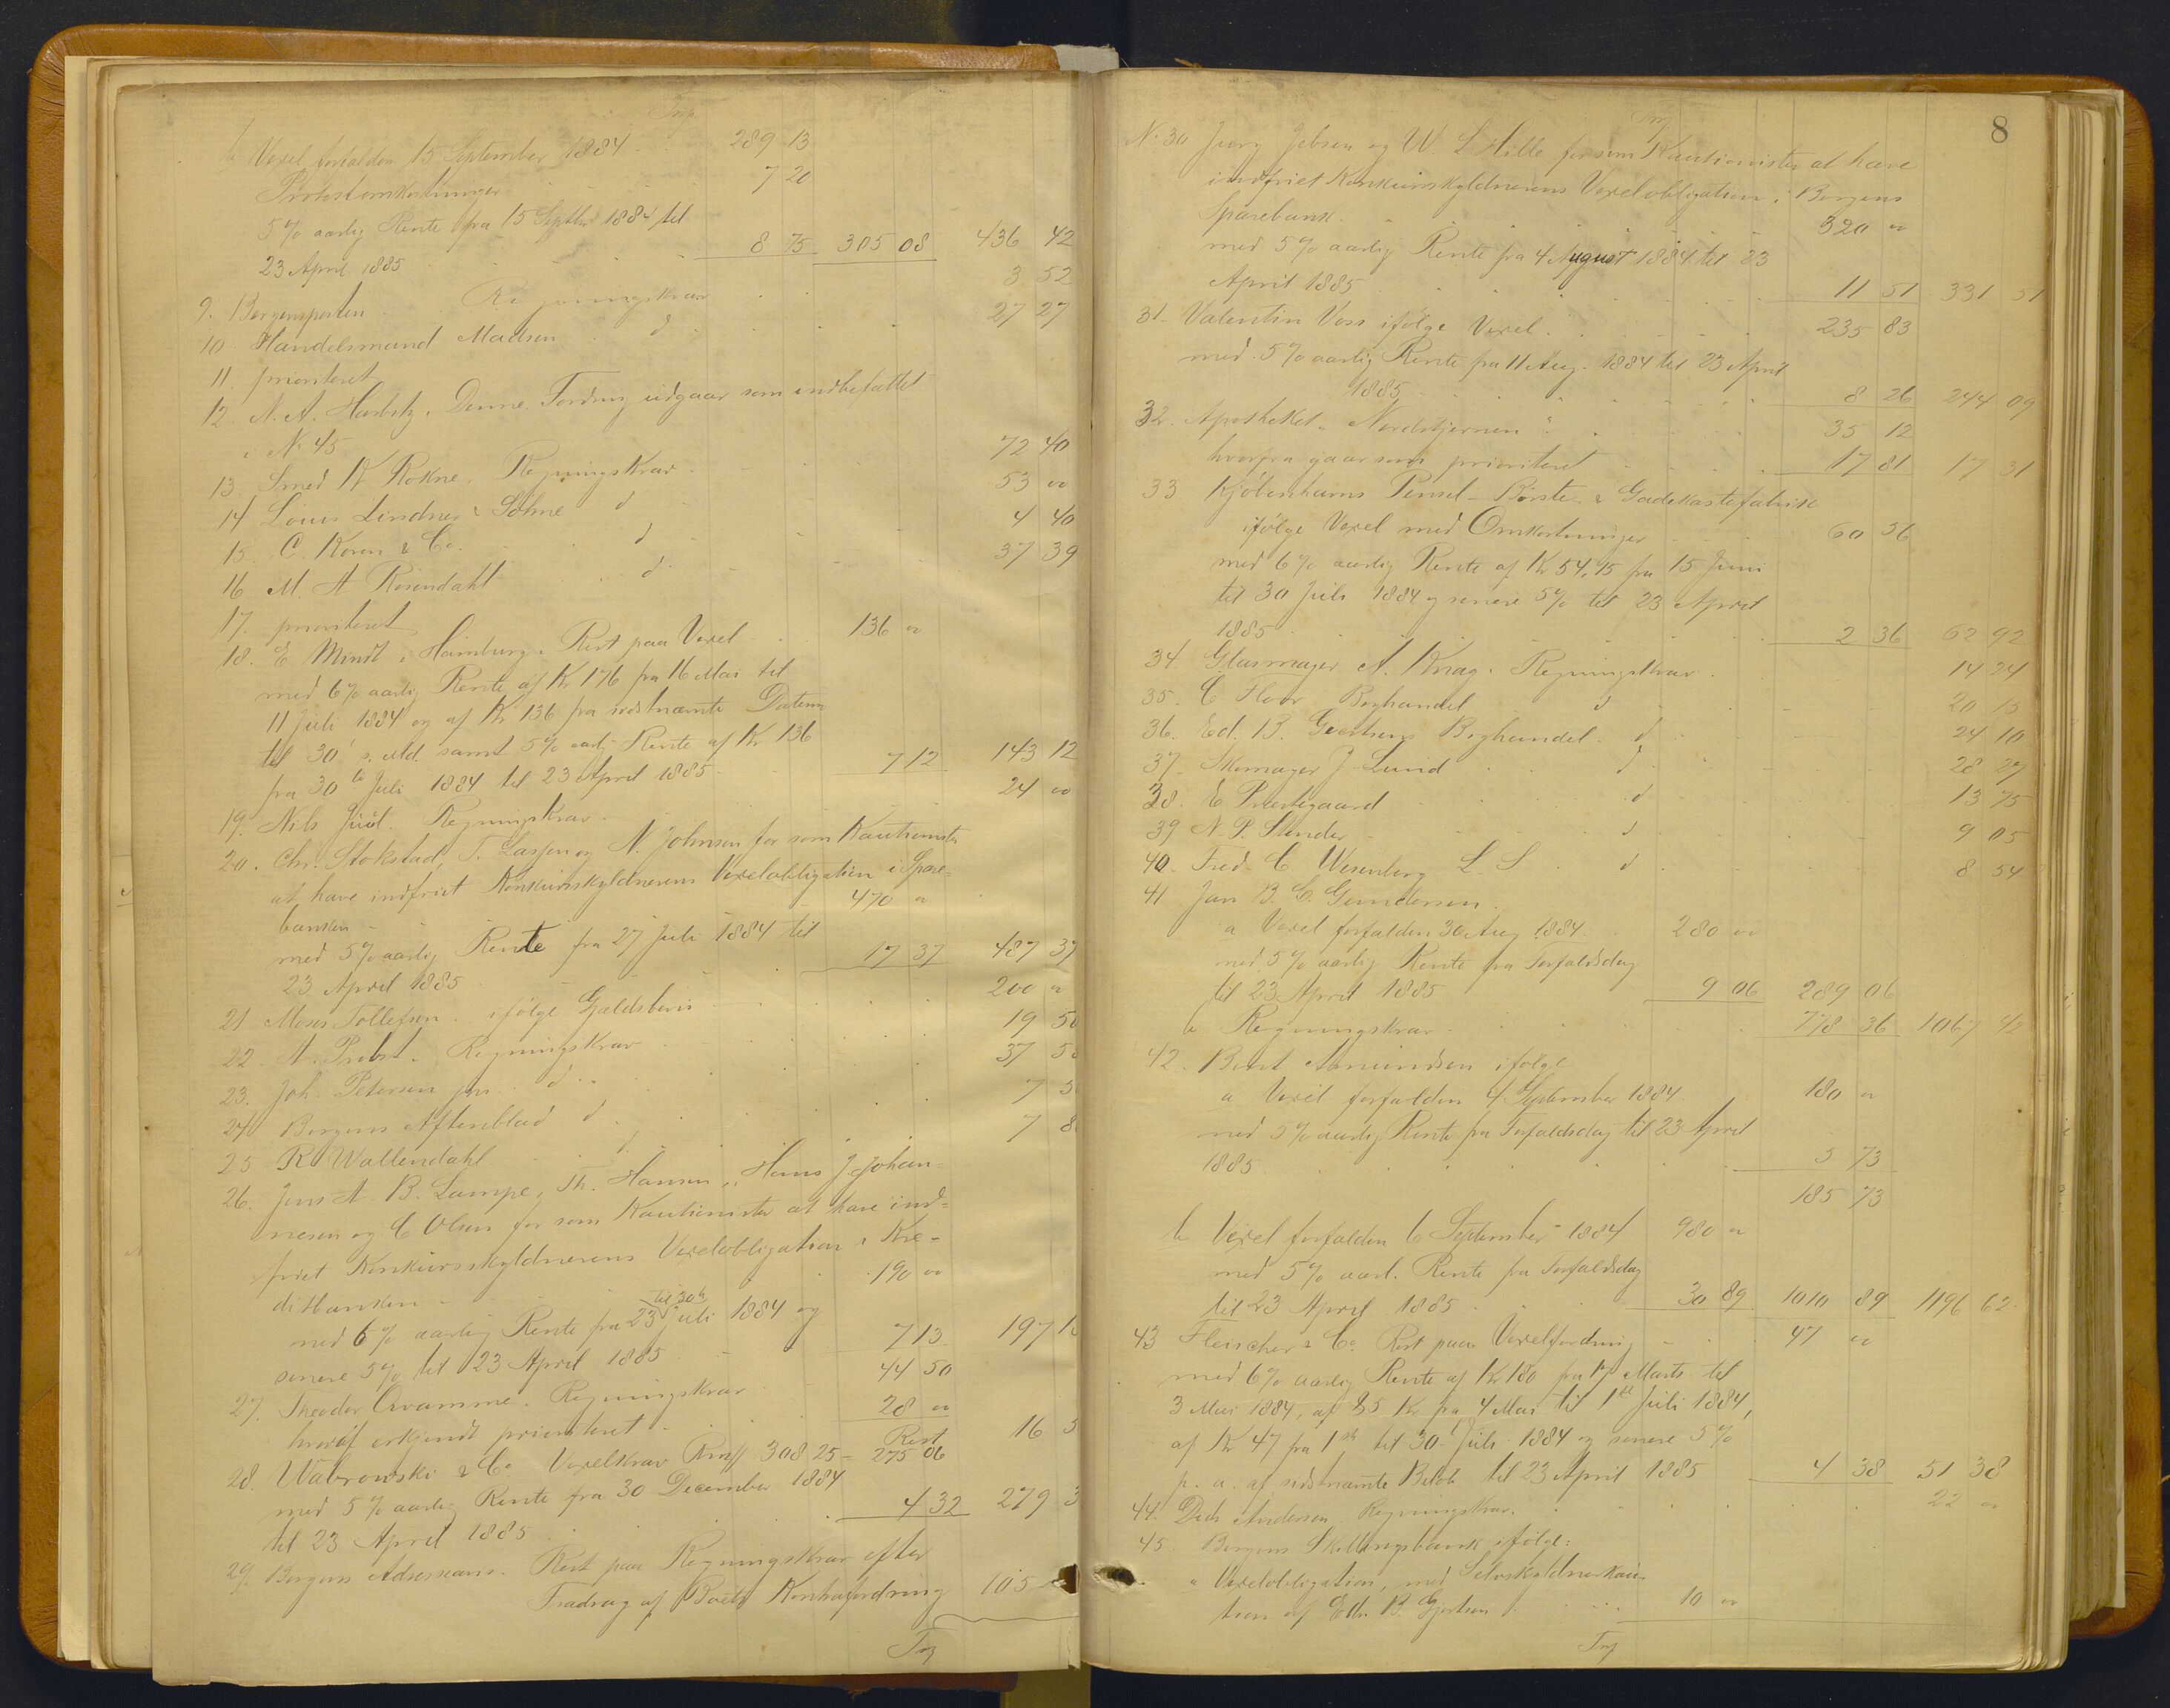 Trsp
b Vexel forfalden 15 September 1884 289 13
Protestomkostninger 7 20
5% aarlig Rente fra 15 Septbr 1884 til
23 April 1885 8 75 305 08 436 42
9. Bergensposten Regningskrav 3 52
10 Handelsmand Madsen d 27 27
11. prioriteret
12 N. A. Harbitz. Denne Fordring udgaar som indbefattet
i No 45
13 Smed K Rokne, Regningskrav 72 40
14 Louis Lindner & Söhne d 53 00
15 C. Koren & Co. d 4 40
16 M. A Rosendahl d 37 39
17. prioriteret
18. E Mindt i Hamburg. Rest paa Vexel 136 00
med 6% aarlig Rente af Kr 176 fra 16 Mai til
11 Juli 1884 og af Kr 136 fra sidstnæmte Datum
til 30 s. Md. samt 5% aarlig Rente af Kr 136
fra 30te Juli 1884 til 23 April 1885 7 12 143 12
19. Nils Juul. Regningskrav. 24 00
20. Chr. Stokstad, T. Laspen og N. Johnsen for som Kautionister
at have indfriet Konkursskyldnerens Vexelobligation i Spare=
banken 470 "
med 5% aarlig Rente fra 27 Juli 1884 til
23 April 1885 17 37 487 37
21 Moses Tollefsen. ifölge Gjældsbevis 200 "
22. A. Probst. Regningskrav 19 50
23. Joh. Petersen jun. d 37 5
24 Bergens Aftenblad d 7 5
25 R Wallendahl d 7 8
26. Jens A. B. Lampe, Th. Hansen, Hans J. Johan=
nesen og C Olsen for som Kautionister at have ind=
friet Konkursskyldnerens Vexelobligation i Kre=
ditbanken 190 00
til 30te
med 6% aarlig Rente fra 23 Juli 1884 og
senere 5% til 23 April 1885 7 13 197 1
27. Theodor Qvamme. Regningskrav 44 50
hvoraf erkjendt prioriteret 28 00 16 5
Rest
28. Wabrowski & Co Vexelkrav Rmff 308 25 - 275 06
med 5% aarlig Rente fra 30 December 1884
til 23 April 1885 4 32 279 3
29. Bergens Adresseavis. Rest paa Regningskrav efter
Fradrag af Boets Kontrafordring 105
Trsp
8
Trsp
No 30 Jurg Jebsen og W. L Hille for som Kautionister at have
indfriet Konkursskyldnerens Vexelobligation i Bergens
Sparebank 320 00
med 5% aarlig Rente fra 4 August 1884 til 23
April 1885 11 51 331 51
31. Valentin Voss ifölge Vexel 235 83
med 5% aarlig Rente fra 11 Aug. 1884 til 23 April
1885 8 26 244 09
32. Apotheket "Nordstjernen" 35 12
hvorfra gaar som prioriteret 17 81 17 31
33 Kjöbenhavns Pensel- Börste- & Gadekostefabrik
ifölge Vexel med Omkostninger 60 56
med 6% aarlig Rente af Kr 54,75 fra 15 Juni
til 30 Juli 1884 og senere 5% til 23 April
1885 2 36 62 92
34. Glasmager A. Krag. Regningskrav 14 24
35. C Floor Boghandel d 20 15
36. Ed. B. Giertsens Boghandel. d 24 10
37. Skomager J Lund d 28 27
38. E Prestegaard d 13 75
39 N. P. Sender d 9 05
40. Fred. C Wesenberg L. S d 8 54
41 Jan B. C. Gundersen.
a Vexel forfalden 30 Aug 1884. 280 00
med 5% aarlig Rente fra Forfaldsdag
til 23 April 1885 9 06 289 06
b Regningskrav 778 36 1067 42
42. Bernt Amundsen ifölge
a Vexel forfalden 4 September 1884. 180 "
med 5% aarlig Rente fra Forfaldsdag til 23 April
1885 5 73
185 73
b Vexel forfalden 6 September 1884 980 "
med 5% aarl. Rente fra Forfaldsdag
til 23 April 1885 30 89 1010 89 1196 62
43 Fleischer & Co. Rest paa Vexelfordring 47 00
med 6% aarlig Rente af Kr 180 fra 17 Marts til
3 Mai 1884, af 85 Kr fra 4 Mai til 1ste Juli 1884,
af Kr 47 fra 1ste til 30 Juli 1884 og senere 5%
p. a. af sidstnæmte Belöb til 23 April 1885 4 38 51 38
44. Ditl. Andersen Regningskrav. 22 00
45. Bergens Skillingsbank ifölge:
a Vexelobligation, med Selvskyldnerkau=
tion af Ells. B. Gjertsen 10 00
Trsp